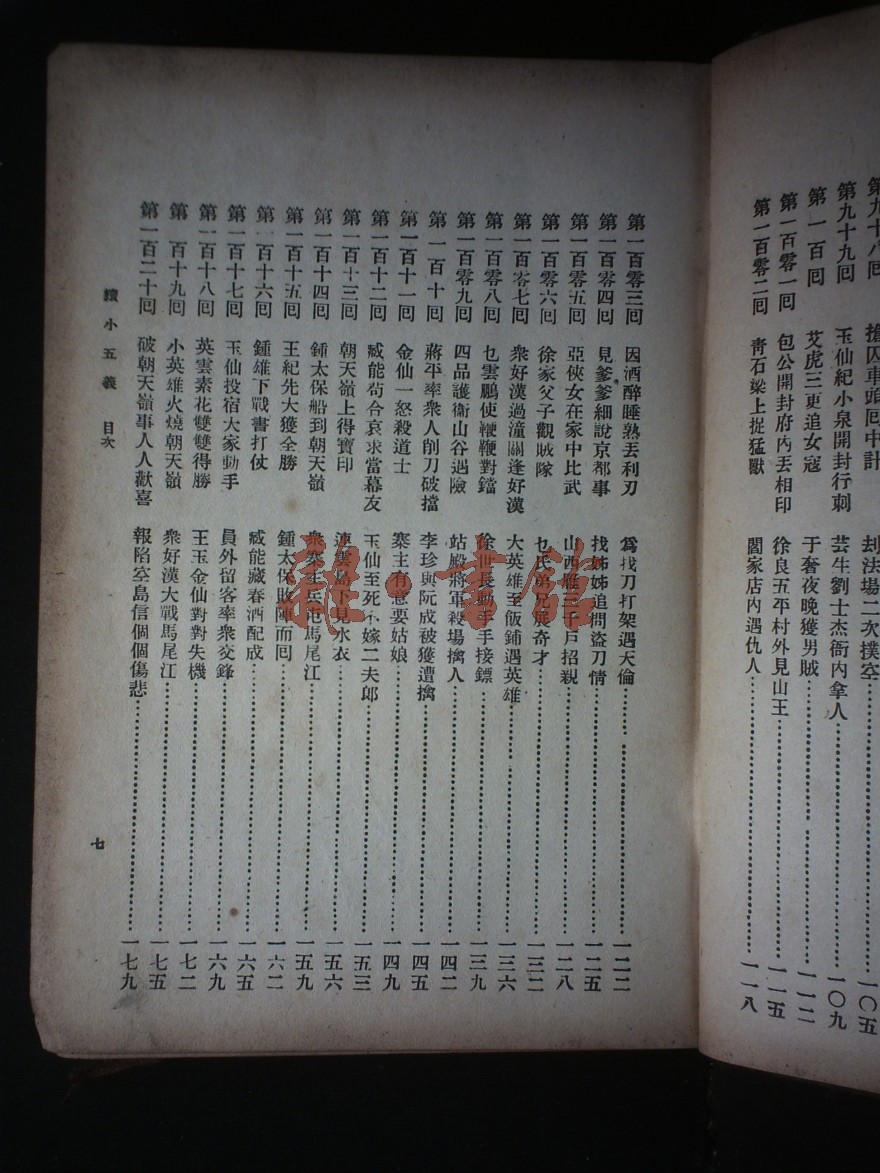 第九十八回 搶囚車頭回中計 刦法場二次撲空 一〇五
第九十九回 玉仙紀小泉開封行刺 芸生劉士杰衙內拿人 一〇九
第一百回 艾虎三更追女寇 于奢夜晚獲男賊 一一二
第一百零一回 包公開封府內丟相印 徐良五平村外見山王 一一五
第一百零二回 靑石梁上捉猛獸 閻家店內遇仇人 一一八
第一百零三回 因酒醉睡熟丟利刃 爲找刀打架遇天倫 一二二
第一百零四回 見爹爹細說京都事 找姊姊追問盜刀情 一二五
第一百零五回 亞俠女在家中比武 山西雁三千戶招親 一二八
第一百零六回 徐家父子觀賊隊 乜氏弟兄展奇才 一三二
第一百零七回 衆好漢過潼關逢好漢 大英雄至飯鋪遇英雄 一三六
第一百零八回 乜雲鵬使鞭鞭對鐺 徐世長動手手接鏢 一三九
第一百零九回 四品護衛山谷遇險 站殿將軍殺場擒人 一四二
第一百十回 蔣平率衆人削刀破擋 李珍與阮成被獲遭擒 一四五
第一百十一回 金仙一怒殺道士 寨主有意要姑娘 一四九
第一百十二回 臧能苟合哀求當幕友 玉仙至死不嫁二夫郎 一五三
第一百十三回 朝天嶺上得寶印 連雲島下見水衣 一五六
第一百十四回 鍾太保船到朝天嶺 衆寨主兵屯馬尾江 一五九
第一百十五回 王紀先大獲全勝 鍾太保敗陣而回 一六二
第一百十六回 鍾雄下戰書打仗 臧能藏春酒配成 一六五
第一百十七回 玉仙投宿大家動手 員外留客率衆交鋒 一六九
第一百十八回 英雲素花雙雙得勝 王玉金仙對對失機 一七二
第一百十九回 小英雄火燒朝天嶺 衆好漢大戰馬尾江 一七五
第一百二十回 破朝天嶺事人人歡喜 報陷空島信個個傷悲 一七九
續小五義 目次 七